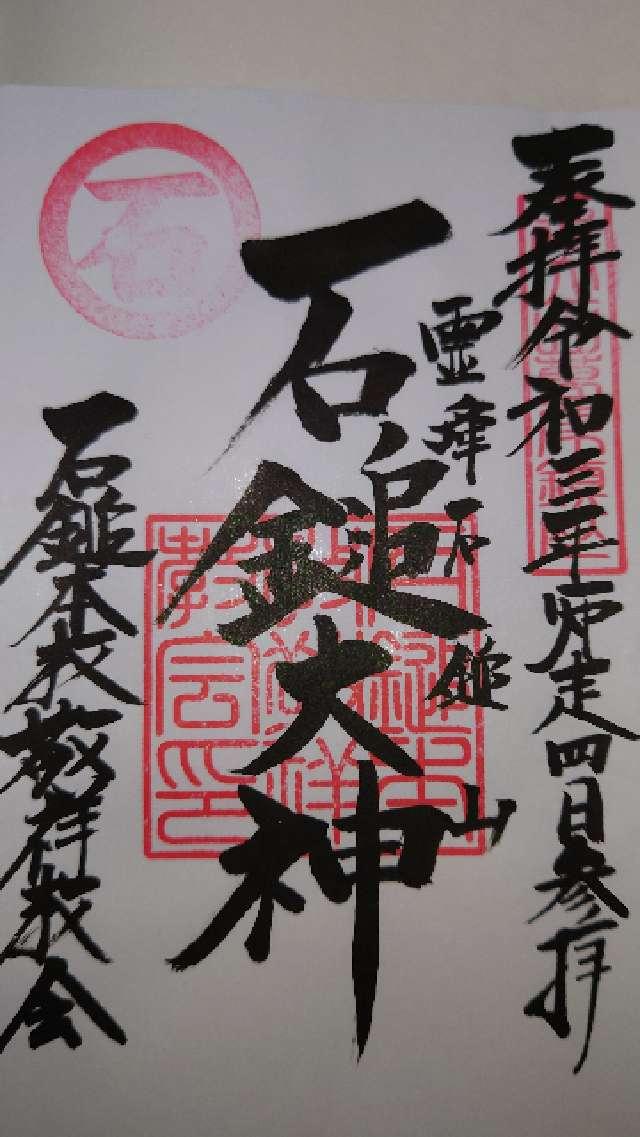 奉拝令和三年師走四日参拝
霊峰石鎚山
石鎚大神
石
石鎚本教敬祥教会